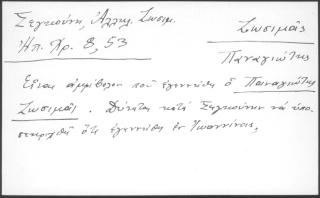 Σεγκούνη, Αλληλ. Ζωσιμ.
Ἠπ. Χρ. 8, 53
Ζωσιμᾶς
Παναγιώτης
Εἶναι ἀμφίβολον ποῦ ἐγεννήθη ὁ Παναγιώτης
Ζωσιμᾶς. Δύναται κατὰ Σεγκούνην νὰ ὑπο-
στηριχθῇ ὅτι ἐγεννήθη ἐν Ἰωαννίνοις.